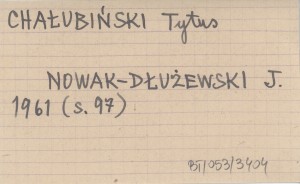 CHAŁUBIŃSKI Tytus
NOWAK-DŁUŻEWSKI J.
1961 (s. 97)
BT/053/3404